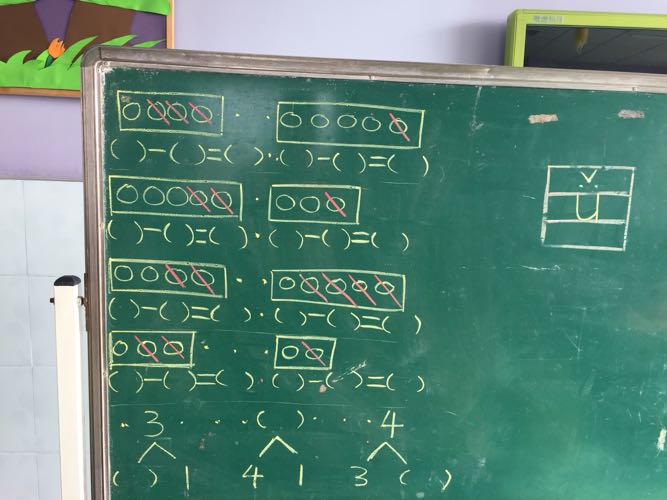 ( )-( )=( ) ( )-( )=( )
( )-( )=( ) ( )-( )=( )
( )-( )=( ) ( )-( )=( )
( )-( )=( ) ( )-( )=( )
3 ( ) 4
( ) 1 4 1 3 ( )
ǚ